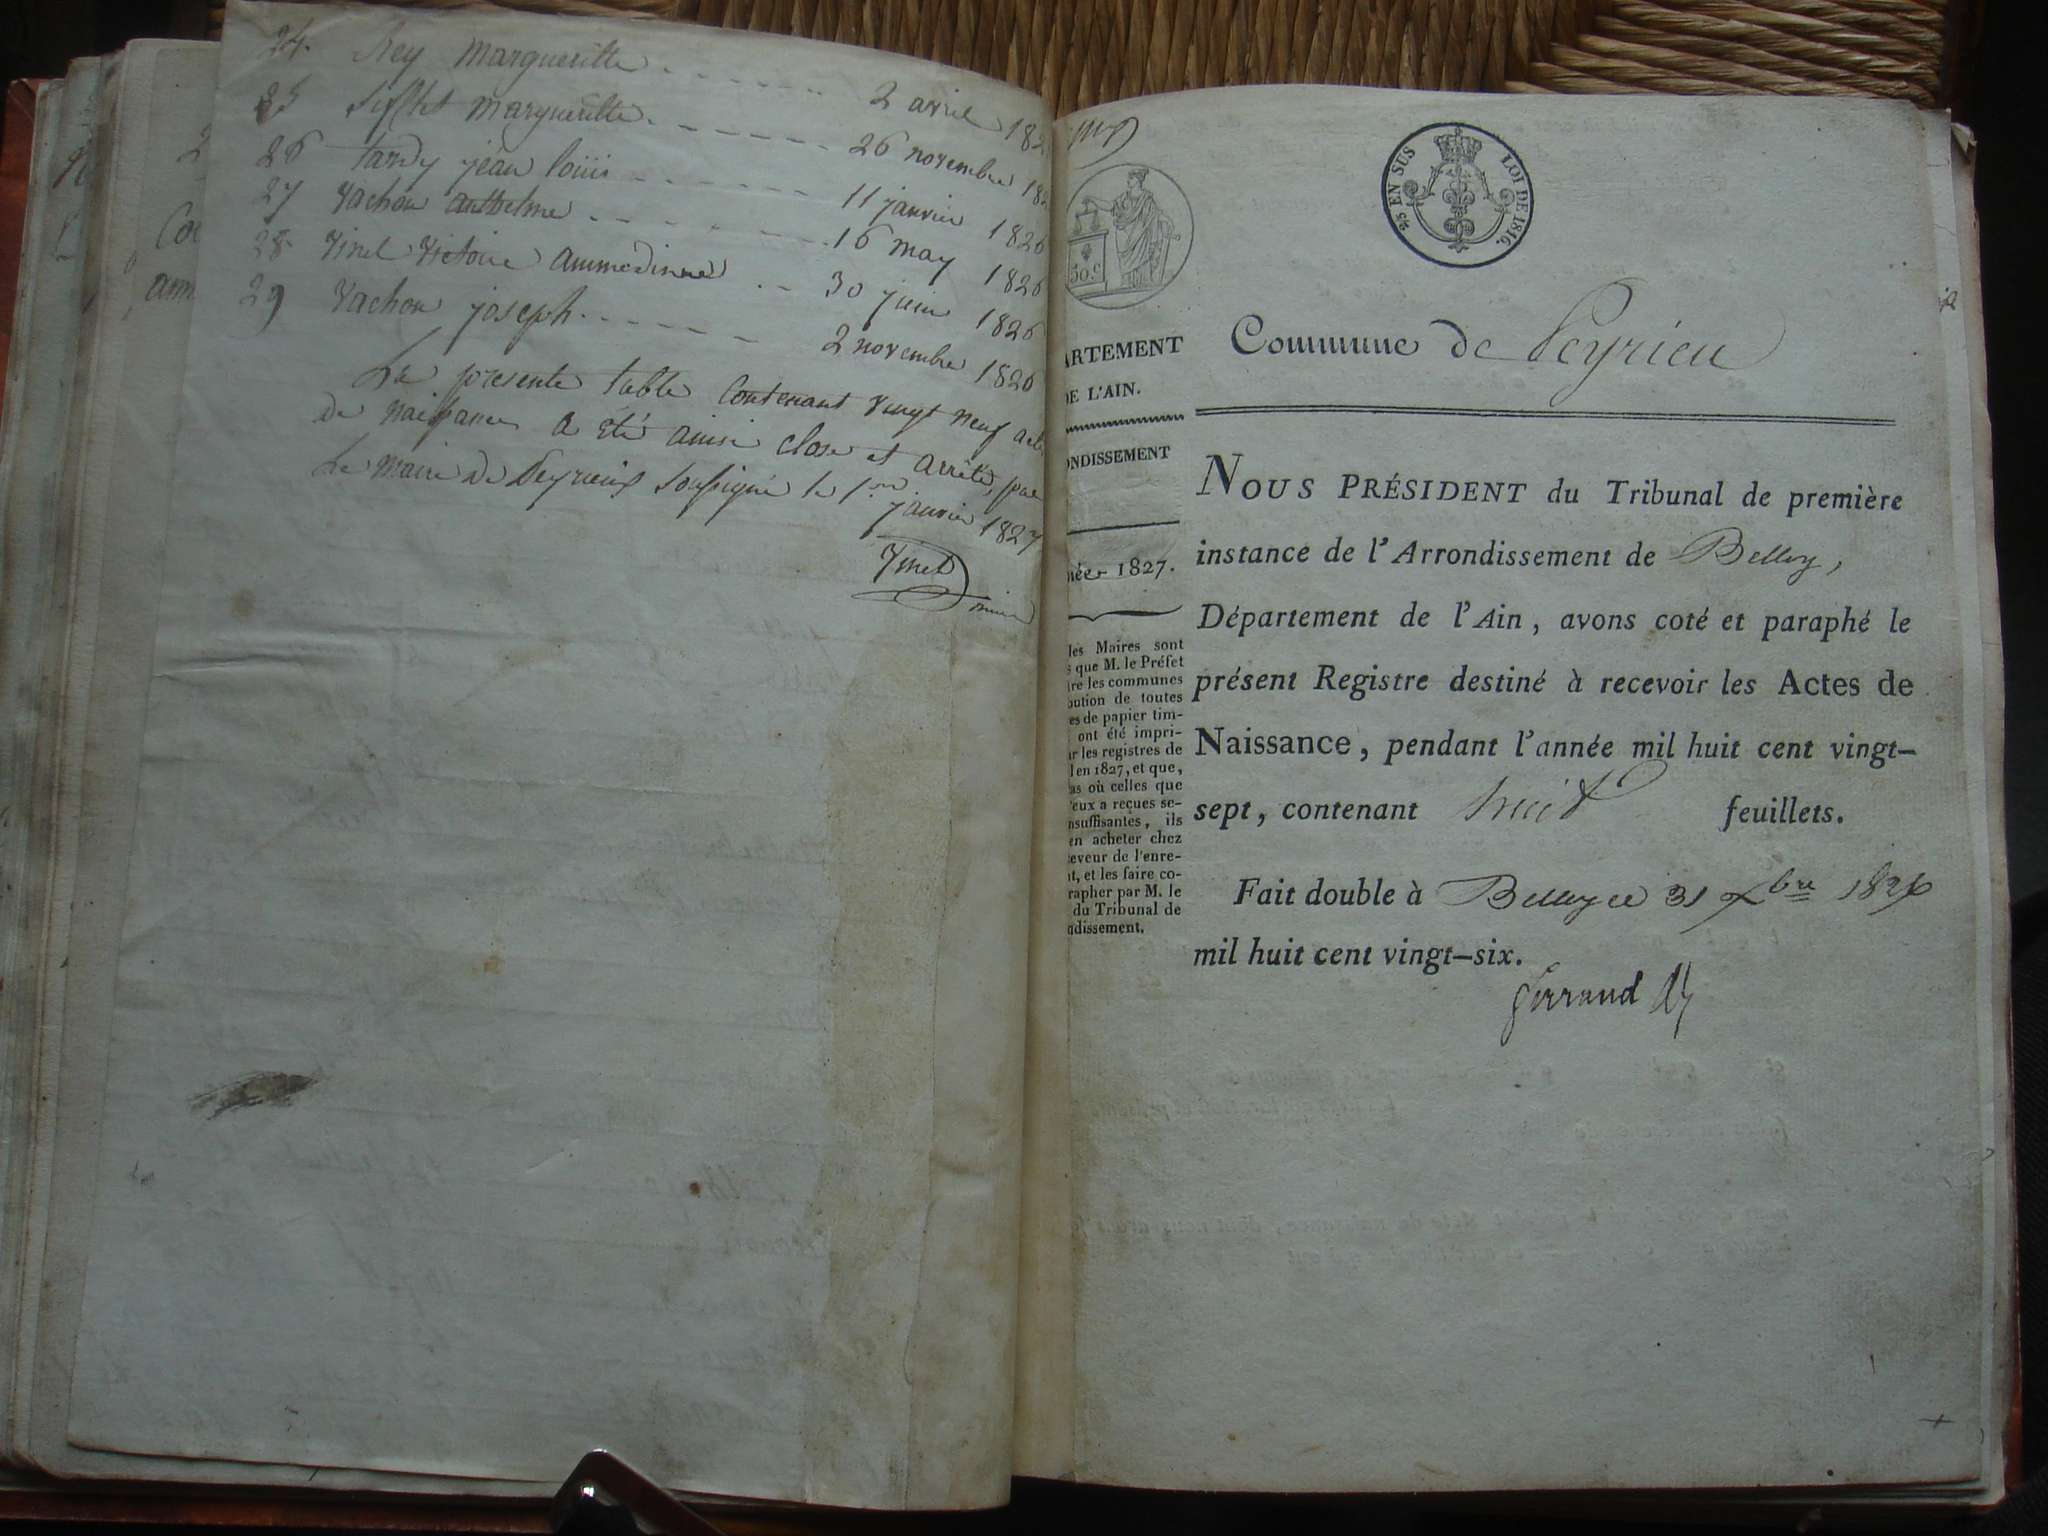 24. Rey Margueritte 2 avril 182
25 Margueritte 26 novembre 182
26 tardy jean louis 11 janvier 1826
27 Vachon anthelme 16 may 1826
28 Vinel Victoire 30 juin 1826
29 Vachon joseph 2 novembre 1826
La presente table Contenant vingt neuf acte
de naissances a été ainsi close et arrêté, par
Le Maire de Peyrieux soussigné le 1er
janvier 1827
Vinel
maire
25 EN SUS LOI DE 1816.
50.c
ARTEMENT
DE L'AIN.
ONDISSEMENT
née 1827.
les Maires sont
s que M. le Préfet
ire les communes
bution de toutes
es de papier tim-
ont été impri-
ur les registres de
l en 1827, et que,
as où celles que
'eux a reçues se-
nsuffisantes, ils
en acheter chez
ceveur de l'enre-
nt, et les faire co-
rapher par M. le
du Tribunal de
ndissement.
Commune de Peyrieu
NOUS PRÉSIDENT du Tribunal de première
instance de l'Arrondissement de Belley,
Département de l'Ain, avons coté et paraphé le
présent Registre destiné à recevoir les Actes de
Naissance, pendant l'année mil huit cent vingt-
sept, contenant huit feuillets.
Fait double à Belley ce 31 xbre 1826
mil huit cent vingt-six.